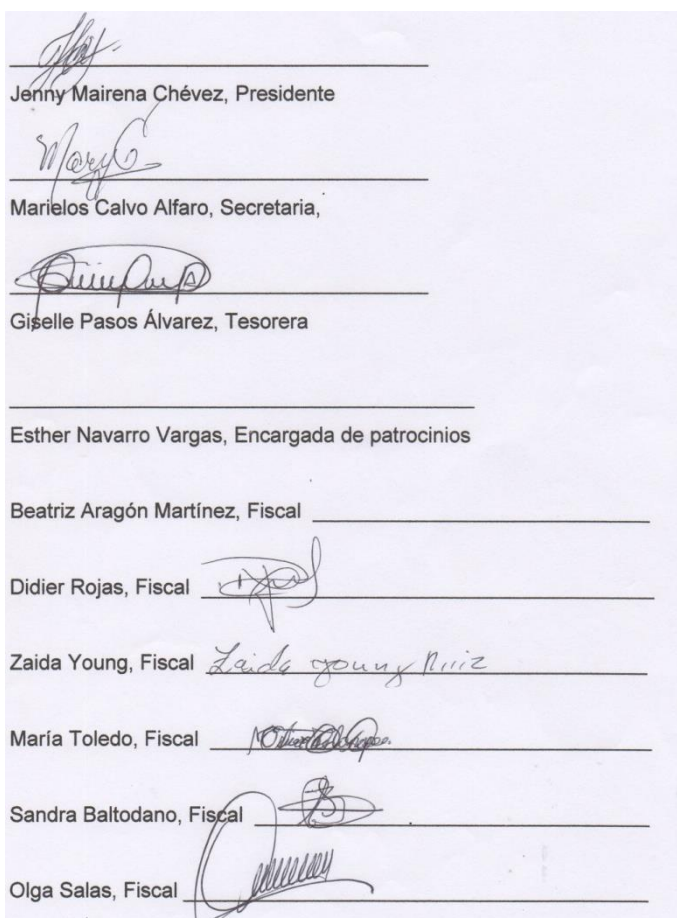 Jenny Mairena Chévez, Presidente
MaryC
Marielos Calvo Alfaro, Secretaria,
Giselle Pasos Álvarez, Tesorera
Esther Navarro Vargas, Encargada de patrocinios
Beatriz Aragón Martínez, Fiscal
Didier Rojas, Fiscal
Zaida Young, Fiscal Zaida young Ruiz
María Toledo, Fiscal
Sandra Baltodano, Fiscal
Olga Salas, Fiscal